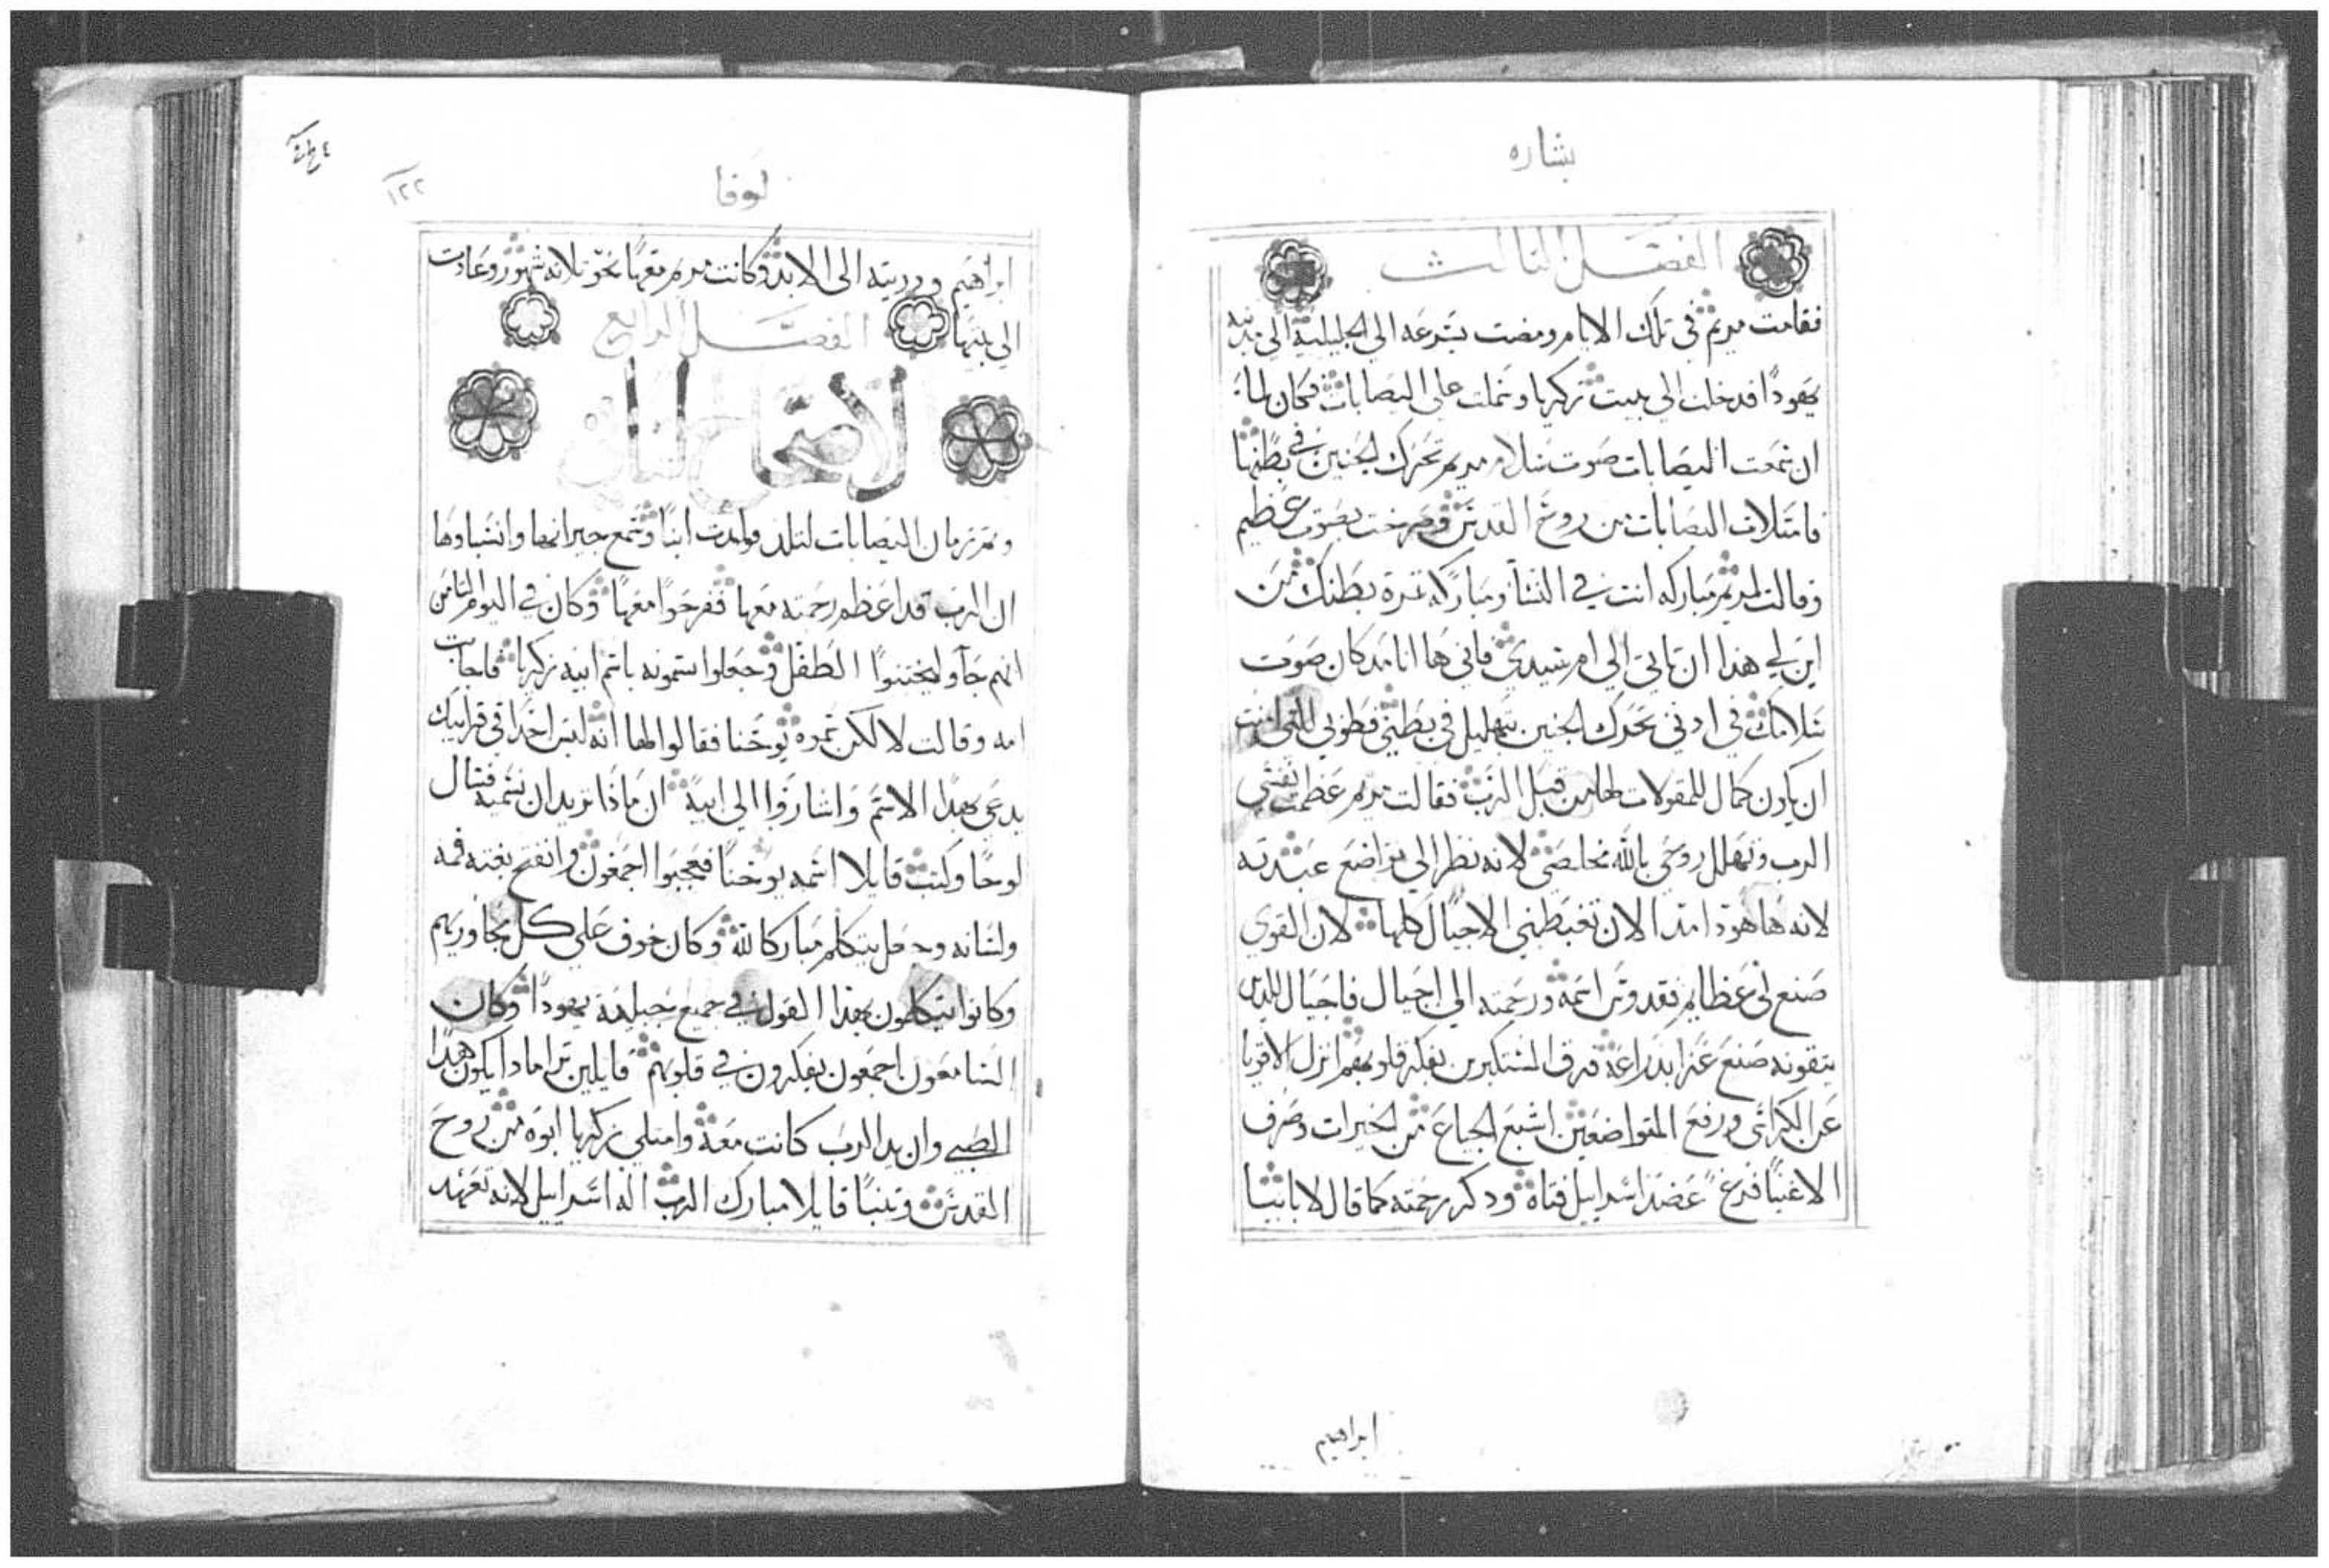 بشاره
الفصل الثالث
فقامت مريم في تلك الايام ومضت بسرعه الي الجليليه الي مدينه
يهودا فدخلت الي بيت زكريا وسلمت علي اليصابات فكان لما
ان سمعت اليصابات صوت سلام مريم تحرك الجنين في بطنها
فامتلات اليصابات من روح القدس وصرخت بصوت عظيم
وقالت لمريم مباركه انت في النسا ومباركه ثمرة بطنك من
اين لي هذا ان تاتي الي ام سيدي فاني ها انا مذ كان صوت
سلامك في ادني تحرك الجنين بتهليل في بطني فطوبي للتي امنت
ان يكون كمال للمقولات لها من قبل الرب فقالت مريم عظمت نفسي
الرب وتهلل روحي بالله مخلصي لانه نظر الي تواضع عبدته
لانه ها هوذا منذ الان تغبطني الاجيال كلها لان القوي
صنع لي عظايم فقدوس اسمه ورحمته الي اجيال فاجيال للذين
يتقونه صنع عزا بذراعه فرق المستكبرين بفكر قلوبهم انزل الاقويا
عن الكراسي ورفع المتواضعين اشبع الجياع من الخيرات وصرف
الاغنيا فرغ عضد اسراييل فتاه ودكر رحمته كما قال لابايينا
ابراهيم
لوقا
١٢٢
ابراهيم ودريته الي الابد وكانت مريم معها نحو ثلاثه شهور وعادت
الي بيتها الفصل الرابع
الاصحاح الثاني
وتم زمان اليصابات لتلد فولدت ابنا وسمع جيرانها وانسباوها
ان الرب قد اعظم رحمته معها ففرحوا معها وكان في اليوم الثامن
انهم جاو ليختنوا الطفل وجعلوا يسمونه باسم ابيه زكريا فاجابت
امه وقالت لا لكن نسموه يوحنا فقالوا لها انه ليس احدا في قرابيك
يدعي بهذا الاسم واشاروا الي ابيه ان ماذا تريد ان نسميه فسال
لوحا وكتب قايلا اسمه يوحنا فعجبوا اجمعون وانفتح بغته فمه
ولسانه وجعل يتكلم مباركا لله وكان خوف علي كل مجاوريهم
وكانوا يتكلمون بهذا القول في جميع جبليه يهودا وكان
السامعون اجمعون يفكرون في قلوبهم قايلين ترا مادا يكون هذا
الصبي وان يد الرب كانت معه وامتلي زكريا ابوه من روح
القدس وتنبا قايلا مبارك الرب اله اسراييل لانه تعهد